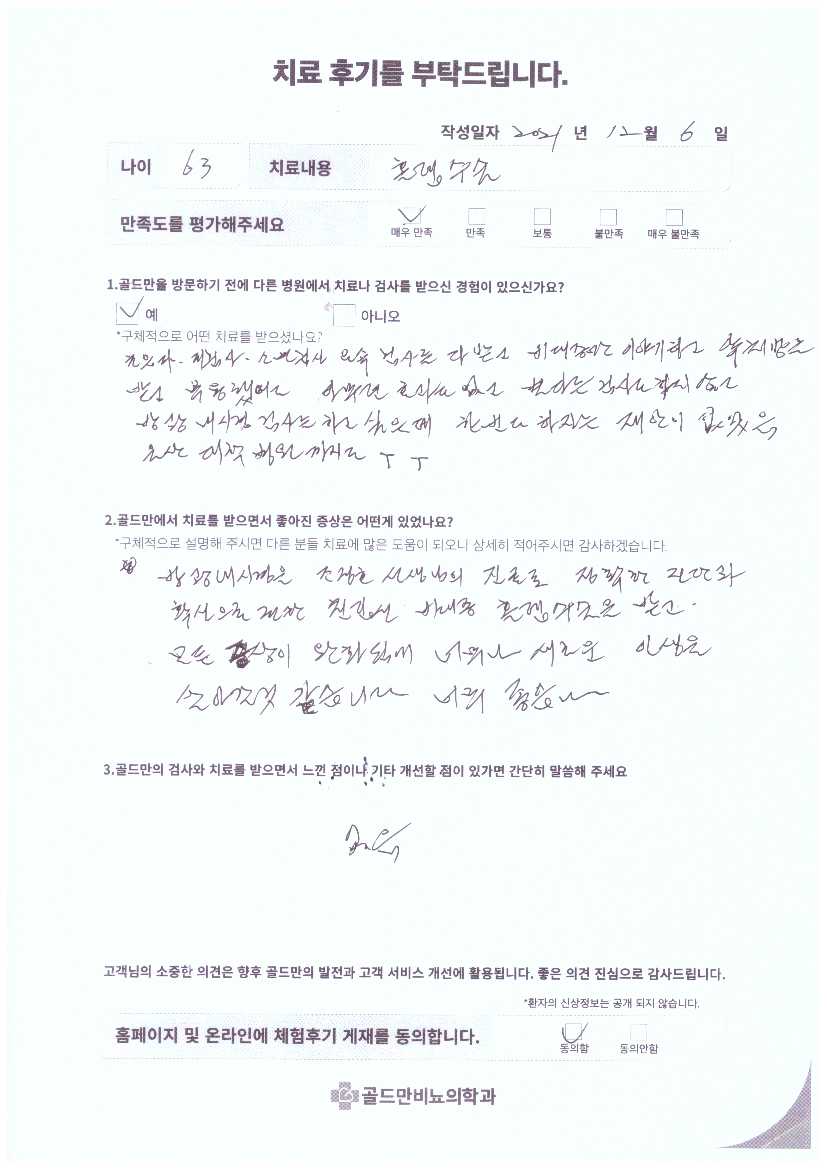 치료 후기를 부탁드립니다.
작성일자 2021 년 12 월 6 일
나이 63 치료내용 홀렙수술
만족도를 평가해주세요 매우 만족 만족 보통 불만족 매우 불만족
1.골드만을 방문하기 전에 다른 병원에서 치료나 검사를 받으신 경험이 있으신가요?
예 아니오
*구체적으로 어떤 치료를 받으셨나요?
검사를 다 받고 비대증만 이야기하고
받고 효과도 없고 검사도 하지 않고
방광내시경 검사는 하고 싶은데 한번도 하자는 제안이 없었음
대학병원까지도 ㅜㅜ
2.골드만에서 치료를 받으면서 좋아진 증상은 어떤게 있었나요?
*구체적으로 설명해 주시면 다른 분들 치료에 많은 도움이 되오니 상세히 적어주시면 감사하겠습니다.
방광내시경을 선생님의 진료로 정확한 진단과
확신으로 전립선 비대증 홀렙수술을 받고.
모든 증상이 완화되어 너무나 새로운 인생을
같습니다 너무 좋습니다
3.골드만의 검사와 치료를 받으면서 느낀 점이나 기타 개선할 점이 있가면 간단히 말씀해 주세요
없음
고객님의 소중한 의견은 향후 골드만의 발전과 고객 서비스 개선에 활용됩니다. 좋은 의견 진심으로 감사드립니다.
*환자의 신상정보는 공개 되지 않습니다.
홈페이지 및 온라인에 체험후기 게재를 동의합니다. 동의함 동의안함
골드만비뇨의학과